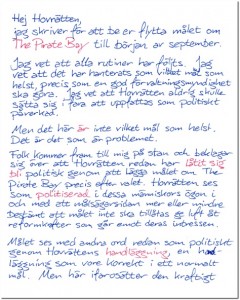 Hej Hovrätten,
jag skriver för att be er flytta målet om
The Pirate Bay till början av september.
Jag vet att alla rutiner har följts. Jag
vet att det har hanterats som vilket mål som
helst, precis som en god förvaltningsmyndighet
ska göra. Jag vet att Hovrätten aldrig skulle
sätta sig i för att uppfattas som politiskt
påverkad.
Men det här är inte vilket mål som helst.
Det är det som är problemet.
Folk kommer fram till mig på stan och beklagar
sig över att Hovrätten redan har låtit sig
bli politisk genom att lägga målet om The
Pirate Bay precis efter valet. Hovrätten ses
som politiserad i dessa människors ögon
och med att målsägarsidan mer eller mindre
bestämt att målet inte ska tillåtas ge luft åt
reformkrafter som går emot deras intressen.
Målet ses med andra ord redan som politiskt
genom Hovrättens handläggning, en hand-
läggning som vore korrekt i ett normalt
mål. Men här ifrågasätter den kraftigt